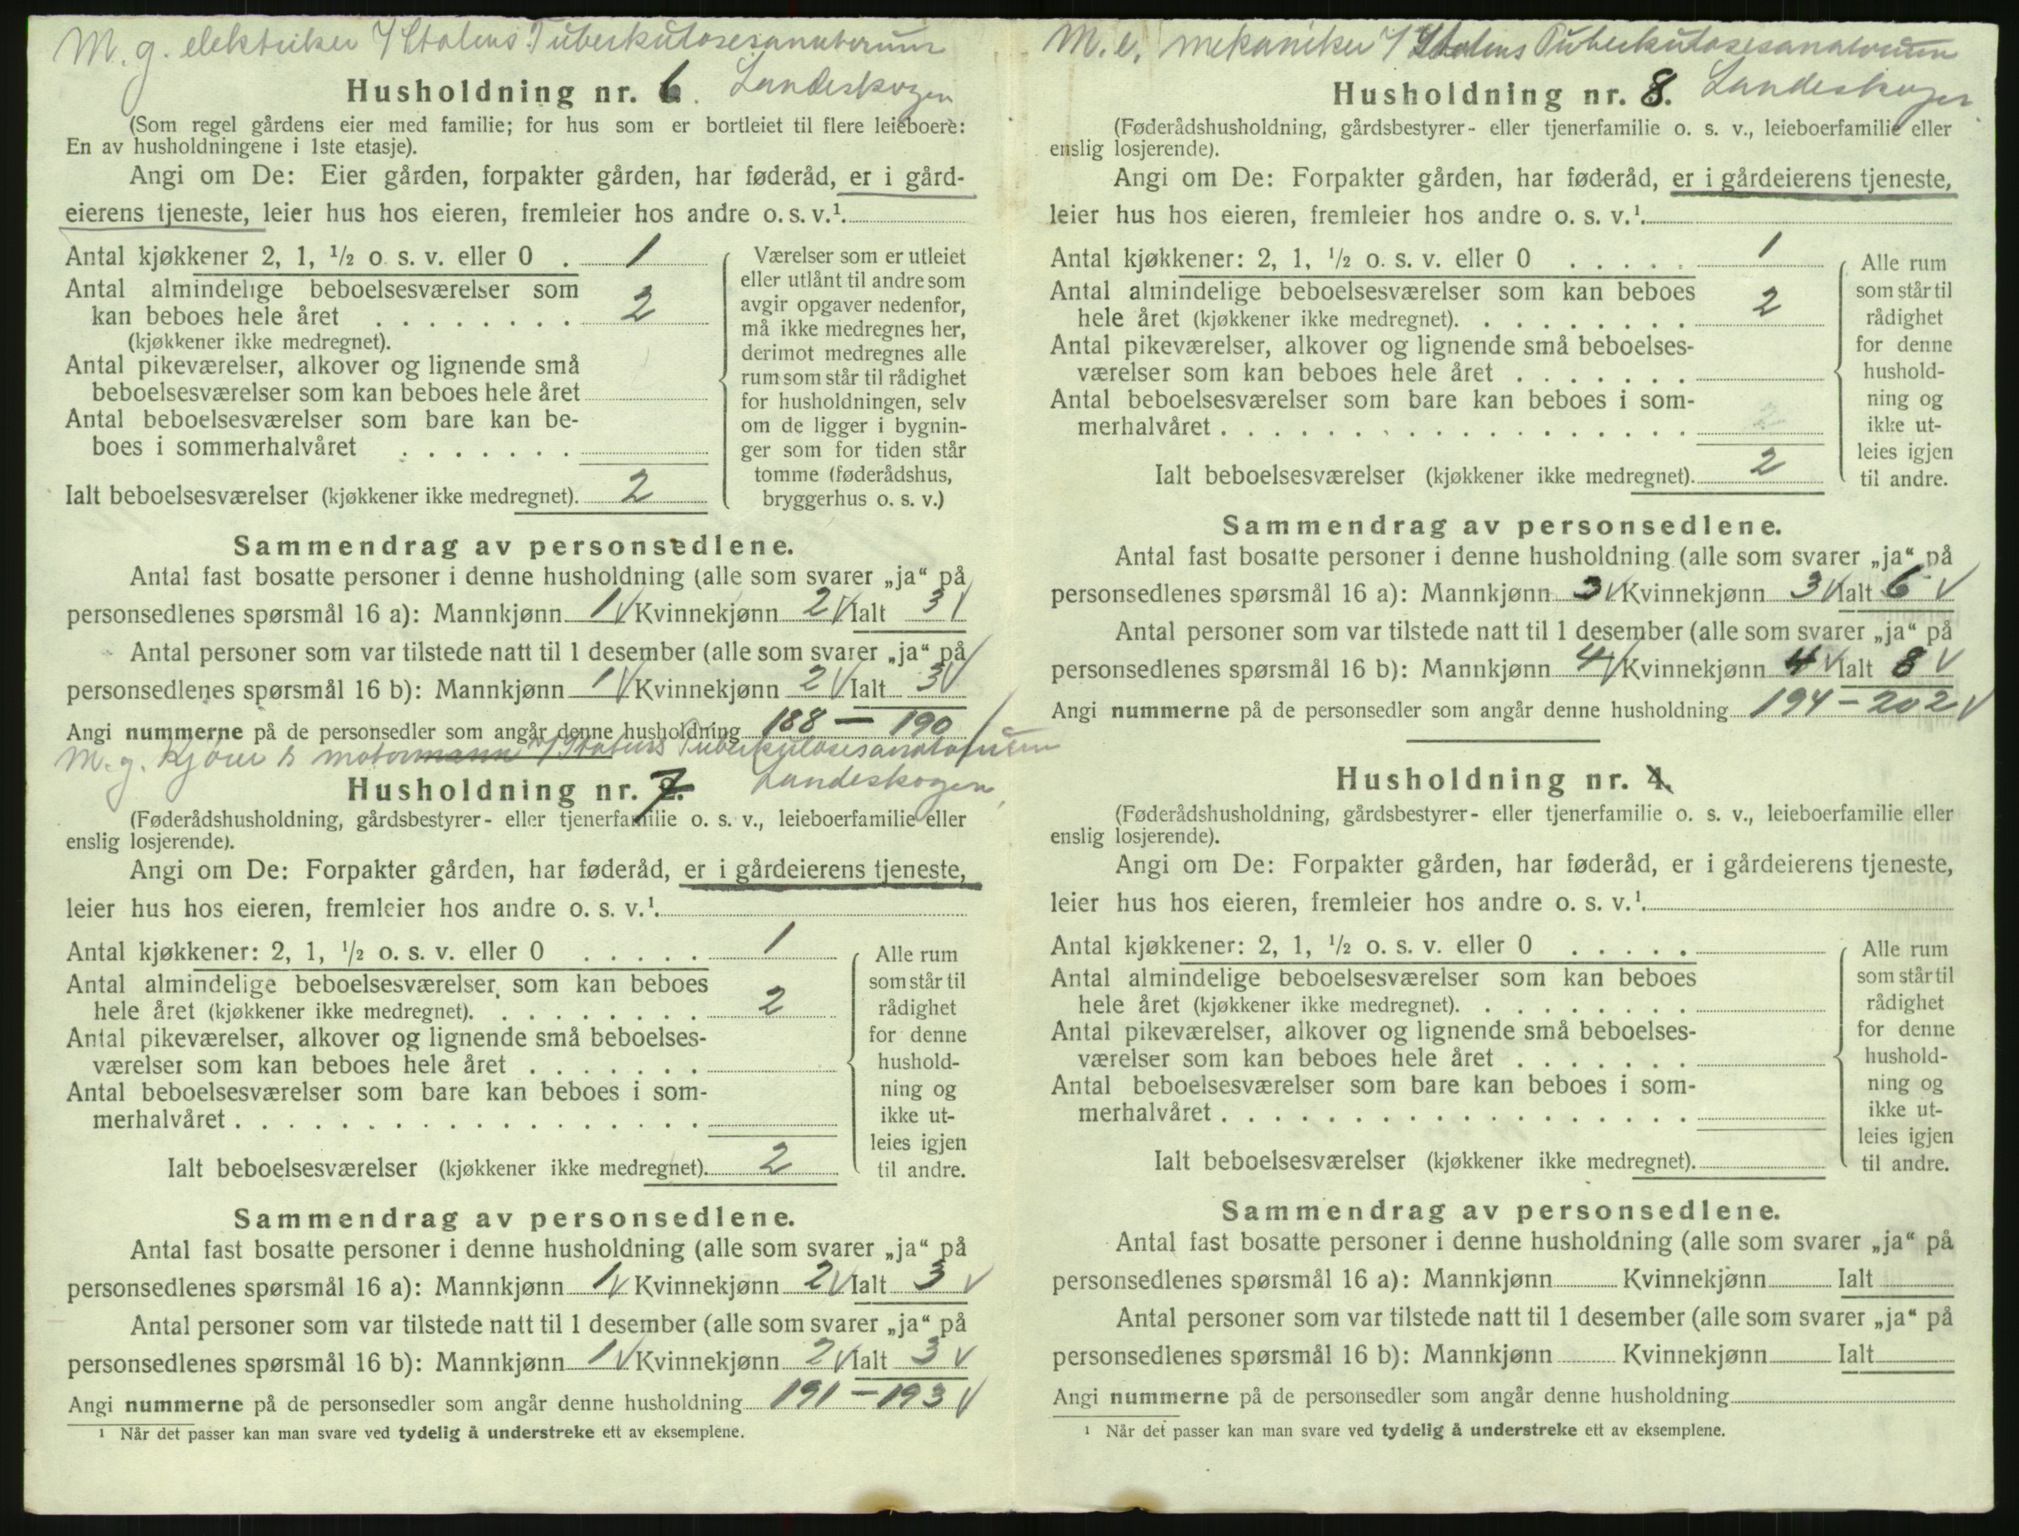 M. g. elektriker v/ Statens Tuberkulosesanatorium
Landeskogen
Husholdning nr. 6.
(Som regel gårdens eier med familie; for hus som er bortleiet til flere leieboere:
En av husholdningene i 1ste etasje).
Angi om De: Eier gården, forpakter gården, har føderåd, er i gård-
eierens tjeneste, leier hus hos eieren, fremleier hos andre o. s. v.¹
Antal kjøkkener 2, 1, ½ o. s. v. eller 0 . 1
Antal almindelige beboelsesværelser som
kan beboes hele året . . . . . . . . 2
(kjøkkener ikke medregnet).
Antal pikeværelser, alkover og lignende små
beboelsesværelser som kan beboes hele året
Antal beboelsesværelser som bare kan be-
boes i sommerhalvåret . . . . . . .
Ialt beboelsesværelser (kjøkkener ikke medregnet). 2
Værelser som er utleiet
eller utlånt til andre som
avgir opgaver nedenfor,
må ikke medregnes her,
derimot medregnes alle
rum som står til rådighet
for husholdningen, selv
om de ligger i bygnin-
ger som for tiden står
tomme (føderådshus,
bryggerhus o. s. v.)
Sammendrag av personsedlene.
Antal fast bosatte personer i denne husholdning (alle som svarer „ja“ på
personsedlenes spørsmål 16 a): Mannkjønn 1 Kvinnekjønn 2 Ialt 3
Antal personer som var tilstede natt til 1 desember (alle som svarer „ja“ på
personsedlenes spørsmål 16 b): Mannkjønn 1 Kvinnekjønn 2 Ialt 3
Angi nummerne på de personsedler som angår denne husholdning 188 — 190
M. g. Kjører & motormann v/ Statens Tuberkulosesanatorium
Landeskogen
Husholdning nr. 7.
(Føderådshusholdning, gårdsbestyrer- eller tjenerfamilie o. s. v., leieboerfamilie eller
enslig losjerende).
Angi om De: Forpakter gården, har føderåd, er i gårdeierens tjeneste,
leier hus hos eieren, fremleier hos andre o. s. v.¹
Antal kjøkkener: 2, 1, ½ o. s. v. eller 0 . . . . . 1
Antal almindelige beboelsesværelser som kan beboes
hele året (kjøkkener ikke medregnet). . . . . . . . . 2
Antal pikeværelser, alkover og lignende små beboelses-
værelser som kan beboes hele året . . . . . . .
Antal beboelsesværelser som bare kan beboes i som-
merhalvåret . . . . . . . . . . . . . . . . . .
Ialt beboelsesværelser (kjøkkener ikke medregnet). 2
Alle rum
som står til
rådighet
for denne
hushold-
ning og
ikke ut-
leies igjen
til andre.
Sammendrag av personsedlene.
Antal fast bosatte personer i denne husholdning (alle som svarer „ja“ på
personsedlenes spørsmål 16 a): Mannkjønn 1 Kvinnekjønn 2 Ialt 3
Antal personer som var tilstede natt til 1 desember (alle som svarer „ja“ på
personsedlenes spørsmål 16 b): Mannkjønn 1 Kvinnekjønn 2 Ialt 3
Angi nummerne på de personsedler som angår denne husholdning 191 — 193
¹ Når det passer kan man svare ved tydelig å understreke ett av eksemplene.
M. e. mekaniker v/ Statens Tuberkulosesanatorium
Landeskogen
Husholdning nr. 8.
(Føderådshusholdning, gårdsbestyrer- eller tjenerfamilie o. s. v., leieboerfamilie eller
enslig losjerende).
Angi om De: Forpakter gården, har føderåd, er i gårdeierens tjeneste,
leier hus hos eieren, fremleier hos andre o. s. v.¹
Antal kjøkkener: 2, 1, ½ o. s. v. eller 0 . . . . . 1
Antal almindelige beboelsesværelser som kan beboes
hele året (kjøkkener ikke medregnet). . . . . . . . . 2
Antal pikeværelser, alkover og lignende små beboelses-
værelser som kan beboes hele året . . . . . . .
Antal beboelsesværelser som bare kan beboes i som-
merhalvåret . . . . . . . . . . . . . . . . . .
Ialt beboelsesværelser (kjøkkener ikke medregnet). 2
Alle rum
som står til
rådighet
for denne
hushold-
ning og
ikke ut-
leies igjen
til andre.
Sammendrag av personsedlene.
Antal fast bosatte personer i denne husholdning (alle som svarer „ja“ på
personsedlenes spørsmål 16 a): Mannkjønn 3 Kvinnekjønn 3 Ialt 6
Antal personer som var tilstede natt til 1 desember (alle som svarer „ja“ på
personsedlenes spørsmål 16 b): Mannkjønn 4 Kvinnekjønn 4 Ialt 8
Angi nummerne på de personsedler som angår denne husholdning 194 — 202
Husholdning nr. 4.
(Føderådshusholdning, gårdsbestyrer- eller tjenerfamilie o. s. v., leieboerfamilie eller
enslig losjerende).
Angi om De: Forpakter gården, har føderåd, er i gårdeierens tjeneste,
leier hus hos eieren, fremleier hos andre o. s. v.¹
Antal kjøkkener: 2, 1, ½ o. s. v. eller 0 . . . . .
Antal almindelige beboelsesværelser som kan beboes
hele året (kjøkkener ikke medregnet). . . . . . . . .
Antal pikeværelser, alkover og lignende små beboelses-
værelser som kan beboes hele året . . . . . . .
Antal beboelsesværelser som bare kan beboes i som-
merhalvåret . . . . . . . . . . . . . . . . . .
Ialt beboelsesværelser (kjøkkener ikke medregnet).
Alle rum
som står til
rådighet
for denne
hushold-
ning og
ikke ut-
leies igjen
til andre.
Sammendrag av personsedlene.
Antal fast bosatte personer i denne husholdning (alle som svarer „ja“ på
personsedlenes spørsmål 16 a): Mannkjønn Kvinnekjønn Ialt
Antal personer som var tilstede natt til 1 desember (alle som svarer „ja“ på
personsedlenes spørsmål 16 b): Mannkjønn Kvinnekjønn Ialt
Angi nummerne på de personsedler som angår denne husholdning
¹ Når det passer kan man svare ved tydelig å understreke ett av eksemplene.